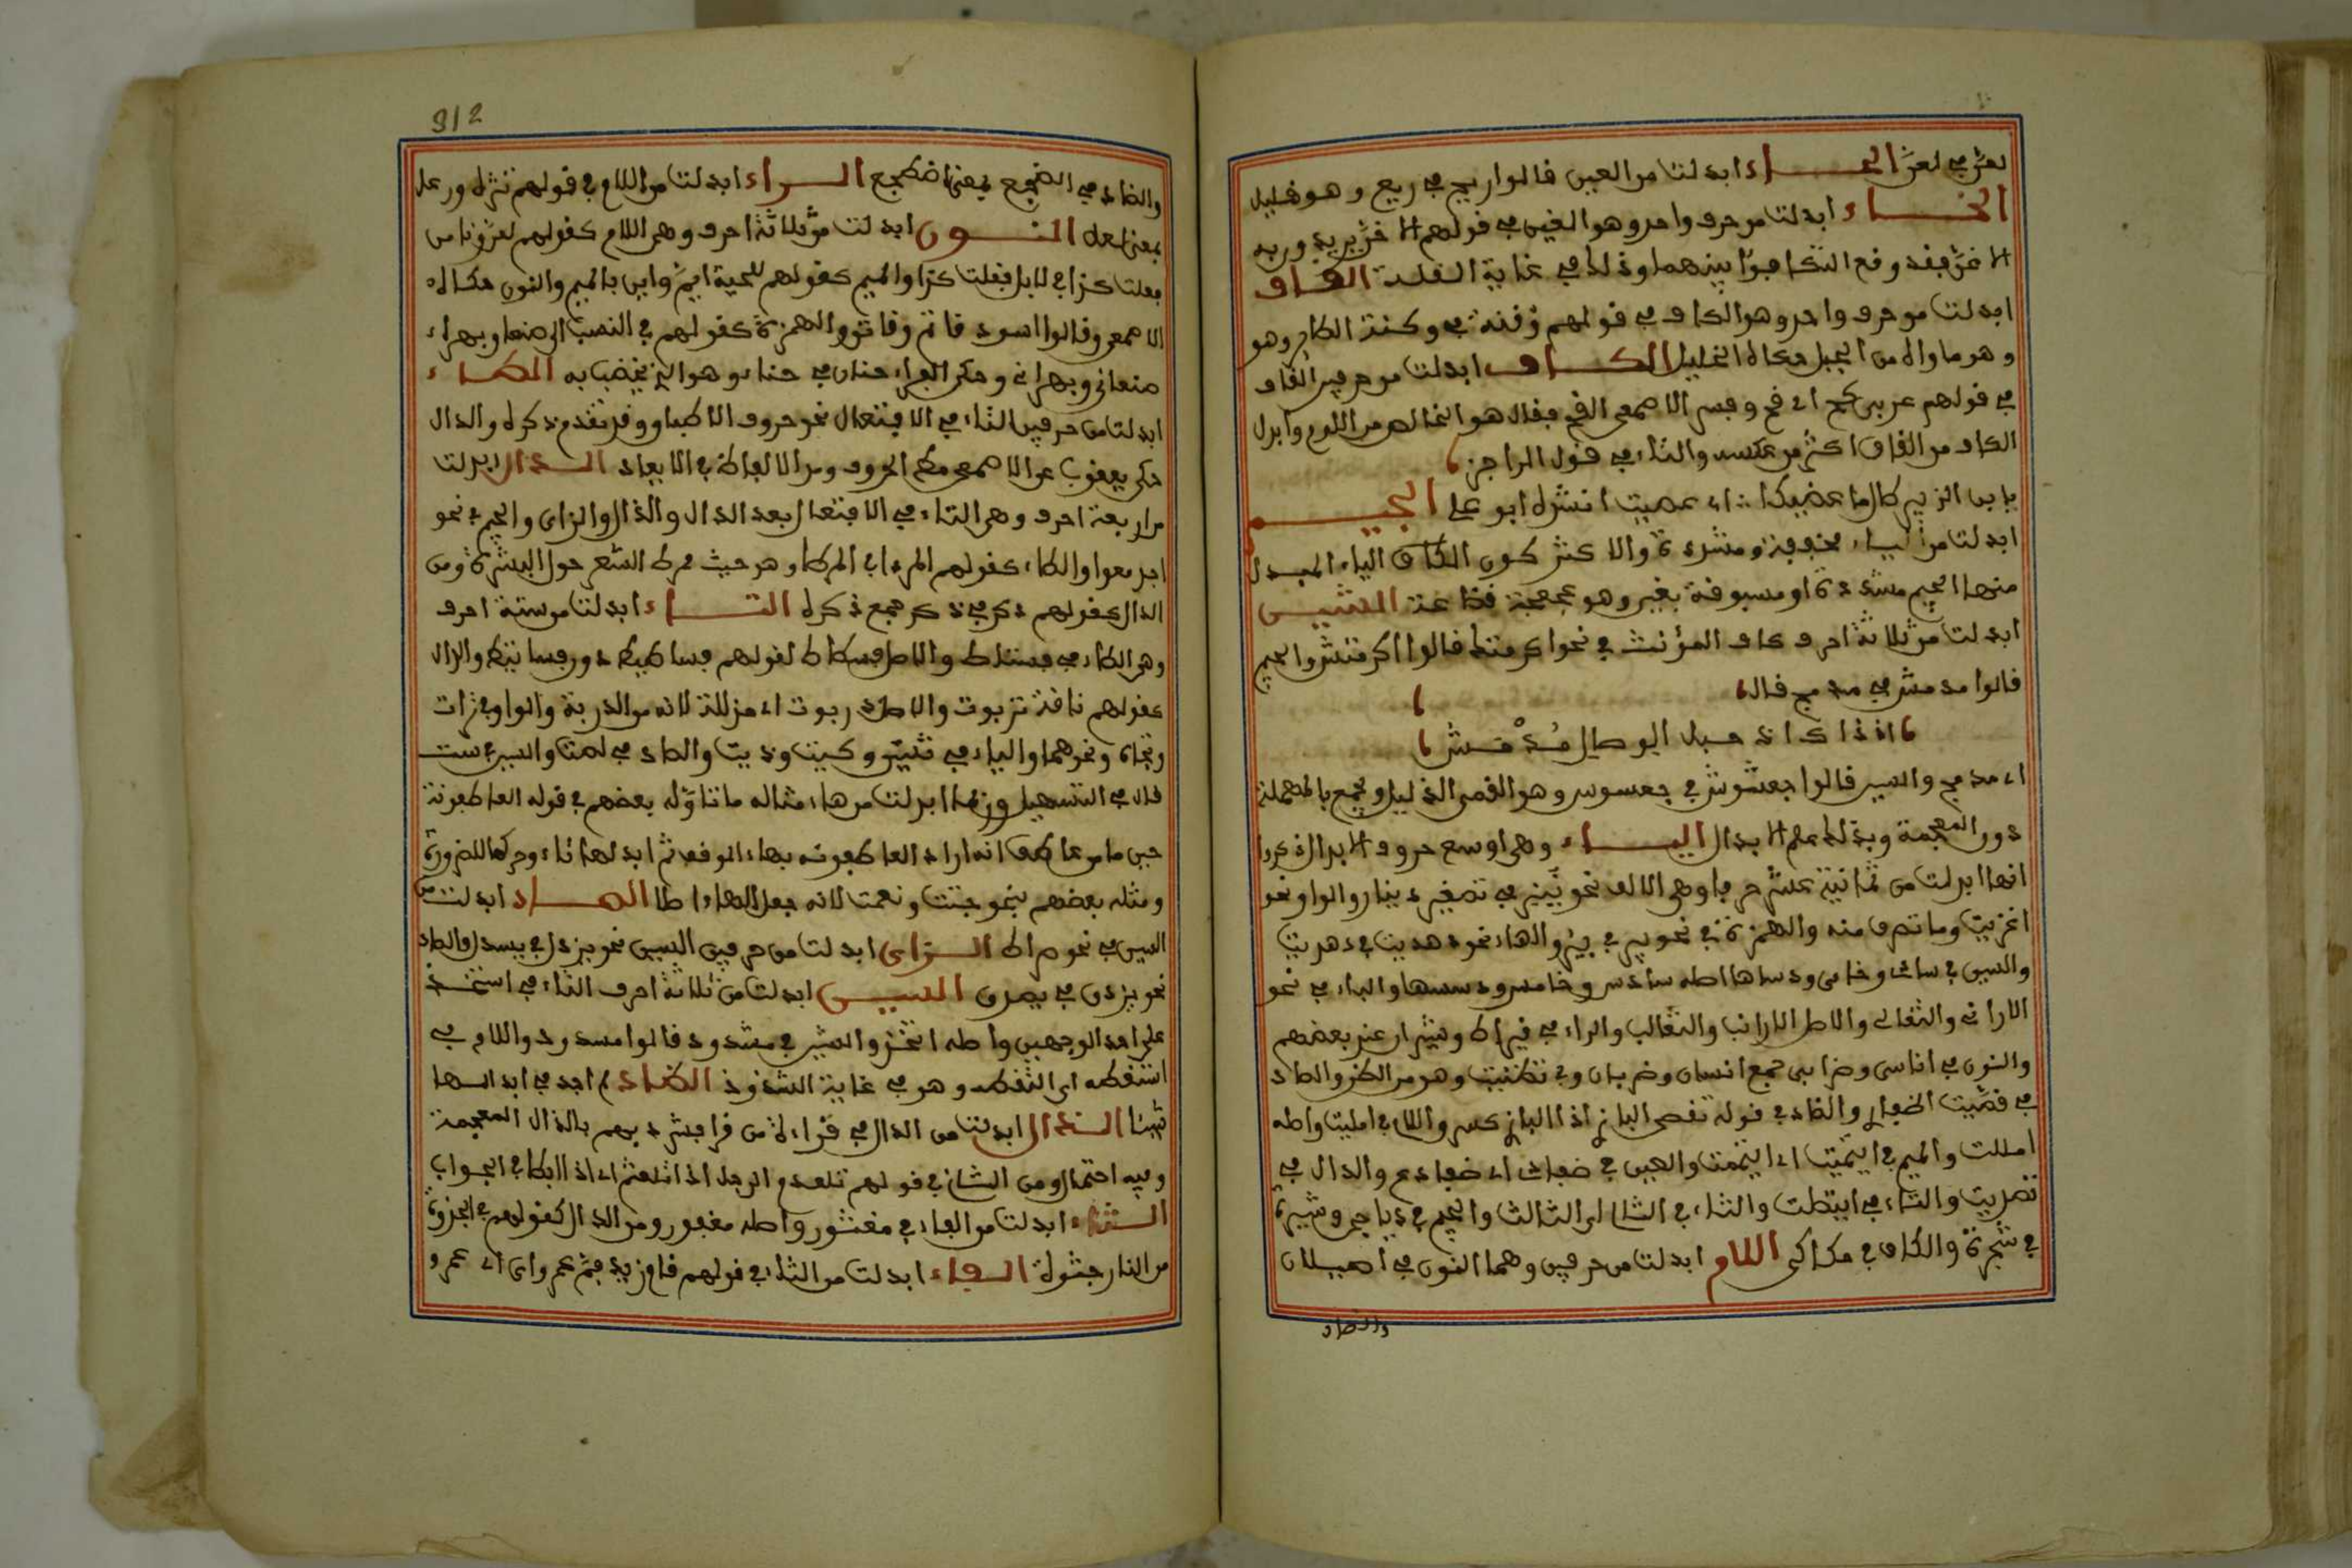 لعن في لعل الحاء ابدلت من العين قالوا ربح في ربع وهو قليل
الخاء ابدلت من حرف واحد وهو الغين في قولهم الاخن يريد وربه
الاغن فقد وقع التكافؤ بينهما وذلك في غاية القلة القاف
ابدلت من حرف واحد وهو الكاف في قولهم وقنة في وكنة الطائر وهو
وهو ماواه من الجبل حكاه الخليل الكاف ابدلت من حرفين القاف
في قولهم عربي كح اي قح وفسر الاصمعي القح فقال هو الخالص من اللوم وابدل
الكاف من القاف اكثر من عكسه والتاء في قول الراجز
يابن الزبير طال ما عصيكا اي عصيت انشده ابو علي الجيم
ابدلت من الياء مخففة ومشددة والاكثر كون الياء المبدل
منها الجيم مشددة او مسبوقة بعين وهو عجعجة قضاعة الشين
ابدلت من ثلاثة احرف كاف المؤنث في نحو اكرمتك قالوا اكرمتش والجيم
قالوا مدمش في مدمج قال
اذ ذاك اذ حبل الوصال مدمش
اي مدمج والسين قالوا جعشوش في جعسوس وهو القمي الذليل ويجمع بالمهملة
دون المعجمة وبذلك علم الابدال الياء وهي اوسع حروف الابدال ذكروا
انها ابدلت من ثمانية عشر حرفا وهي الالف نحو في تصغير دينار والواو نحو
اغزيت وما تصرف منه والهمزة في نحو بير في بئر والهاء نحو دهديت في دهدهت
والسين في سادي وخامي ودساها اصله سادس وخامس ودسسها والباء في نحو
الاراني والثعالي والاصل الارانب والثعالب والراء في قيراط وشيراز عند بعضهم
والنون في اناسي وضرابي جمع انسان وضربان وفي تظنيت وهو من الظن والصاد
في قصيت اظفاري والضاد في قوله تقضي البازي اذا البازي كسر واللام في امليت واصله
امللت والميم في ايتميت اي ايتممت والعين في ضفادي اي ضفادع والدال في
تصديت والتاء في ايتصلت والثاء في الثالي اي الثالث والجيم في دياجي وشيرة
في شجرة والكاف في مكاكي اللام ابدلت من حرفين وهما النون في اصيلان
والضاد
312
والضاد في الطجع بمعنى اضطجع الراء ابدلت من اللام في قولهم نثرة ورعل
بمعنى لعل النون ابدلت من ثلاثة احرف وهي اللام كقولهم لعن ونا من
فعلت كذا في لابل فعلت كذا والميم كقولهم للحية ايم واين بالميم والنون حكاه
الاصمعي وقالوا اسود قاتم وقاتن والهمزة كقولهم في النسب الى صنعاء وبهراء
صنعاني وبهراني وحكى الفراء حنان في حناء وهو الذي يخضب به الطاء
ابدلت من حرفين التاء في الافتعال نحو حروف الاطباق وقد تقدم ذكره والدال
حكى يعقوب عن الاصمعي مط الحروف ومد والابعاط في الابعاد الدال ابدلت
من اربعة احرف وهي التاء في الافتعال بعد الدال والذال والزاي والجيم في نحو
اجدمعوا والطاء كقولهم المردا في المرطا وهو حيث يمرط الشعر حول السرة ومن
الذال كقولهم دكر في ذكر جمع ذكره التاء ابدلت من ستة احرف
وهي الطاء في فستاط والاصل فسطاط لقولهم فساطيط دون فساتيط والدال
كقولهم ناقة تربوت والاصل دربوت اي مذللة لانه من الدربة والواو في تراث
وتجاه ونحوهما والياء في ثنتين وكيت وذيت والصاد في لصت والسين في ست
قال في التسهيل وربما ابدلت من هاء مثاله ما تاوله بعضهم في قوله العاطفونة
حين ما من عاطف انه اراد العاطفونه بهاء الوقف ثم ابدلها تاء وحركها للضرورة
ومثله بعضهم بنحو جنت ونعمت لانه جعل الهاء اصلا الصاد ابدلت من
السين في نحو صراط الزاي ابدلت من حرفين السين نحو يزدل في يسدل والصاد
نحو يزدق في يصدق السين ابدلت من ثلاثة احرف التاء في استخذ
على احد الوجهين واصله اتخذ والشين في مشدود قالوا مسدود واللام في
استقطه اي التقطه وهو في غاية الشذوذ الظاء لم اجد في ابدالها
شيئا الذال ابدلت من الدال في قراءة من قرا فشرذ بهم بالذال المعجمة
وفيه احتمال ومن الثاء في قولهم تلعذم الرجل اذا تلعثم اي اذا ابطا في الجواب
الثاء ابدلت من الفاء في مغثور واصله مغفور ومن الذال كقولهم في الجذوة
من النار جثوة الفاء ابدلت من الثاء في قولهم قام زيد فم عمرو اي ثم عمرو